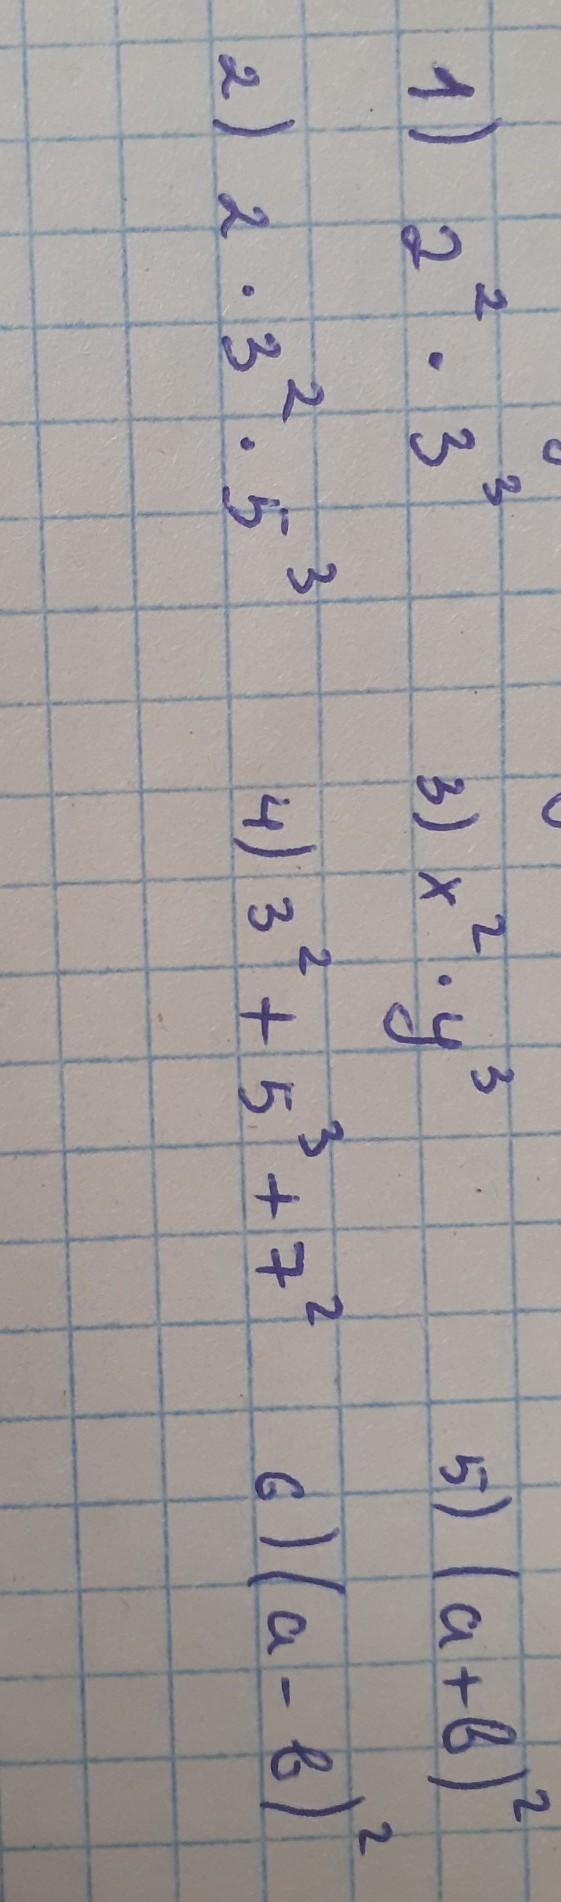 1) 2² · 3³
2) 2 · 3² · 5³
3) x² · y³
4) 3² + 5³ + 7²
5) (a + b)²
6) (a - b)²